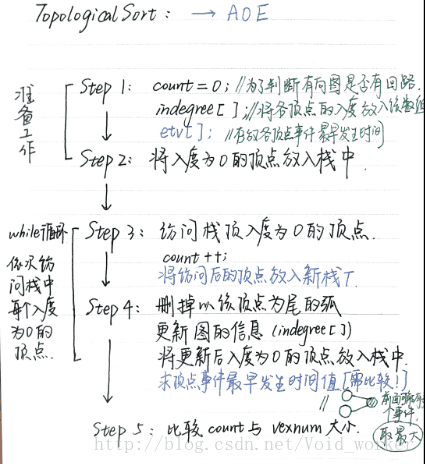 TopologicalSort: → AOE
准备工作
Step 1: count=0; //为了判断有向图是否有回路.
indegree[ ]; //将各顶点的入度放入该数组
etv[ ]; //存放各顶点事件最早发生时间
Step 2: 将入度为0的顶点放入栈中
while循环
依次访问栈中每个入度为0的顶点.
Step 3: 访问栈顶入度为0的顶点.
count ++;
将访问后的顶点放入新栈T
Step 4: 删掉以该顶点为尾的弧
更新图的信息 (indegree[ ])
将更新后入度为0的顶点放入栈中.
求顶点事件最早发生时间值 [需比较!]
//
个事件
取最大
Step 5: 比较 count 与 vexnum 大小.
http://blog.csdn.net/Void_worker